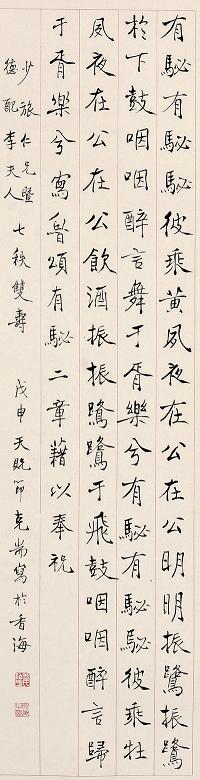 有駜有駜駜彼乘黃夙夜在公在公明明振鷺振鷺
於下鼓咽咽醉言舞于胥樂兮有駜有駜駜彼乘牡
夙夜在公在公飲酒振振鷺鷺于飛鼓咽咽醉言歸
于胥樂兮寫魯頌有駜二章藉以奉祝
少旅仁兄暨
德配李夫人 七秩雙壽 戊申天貺節克耑寫於香海